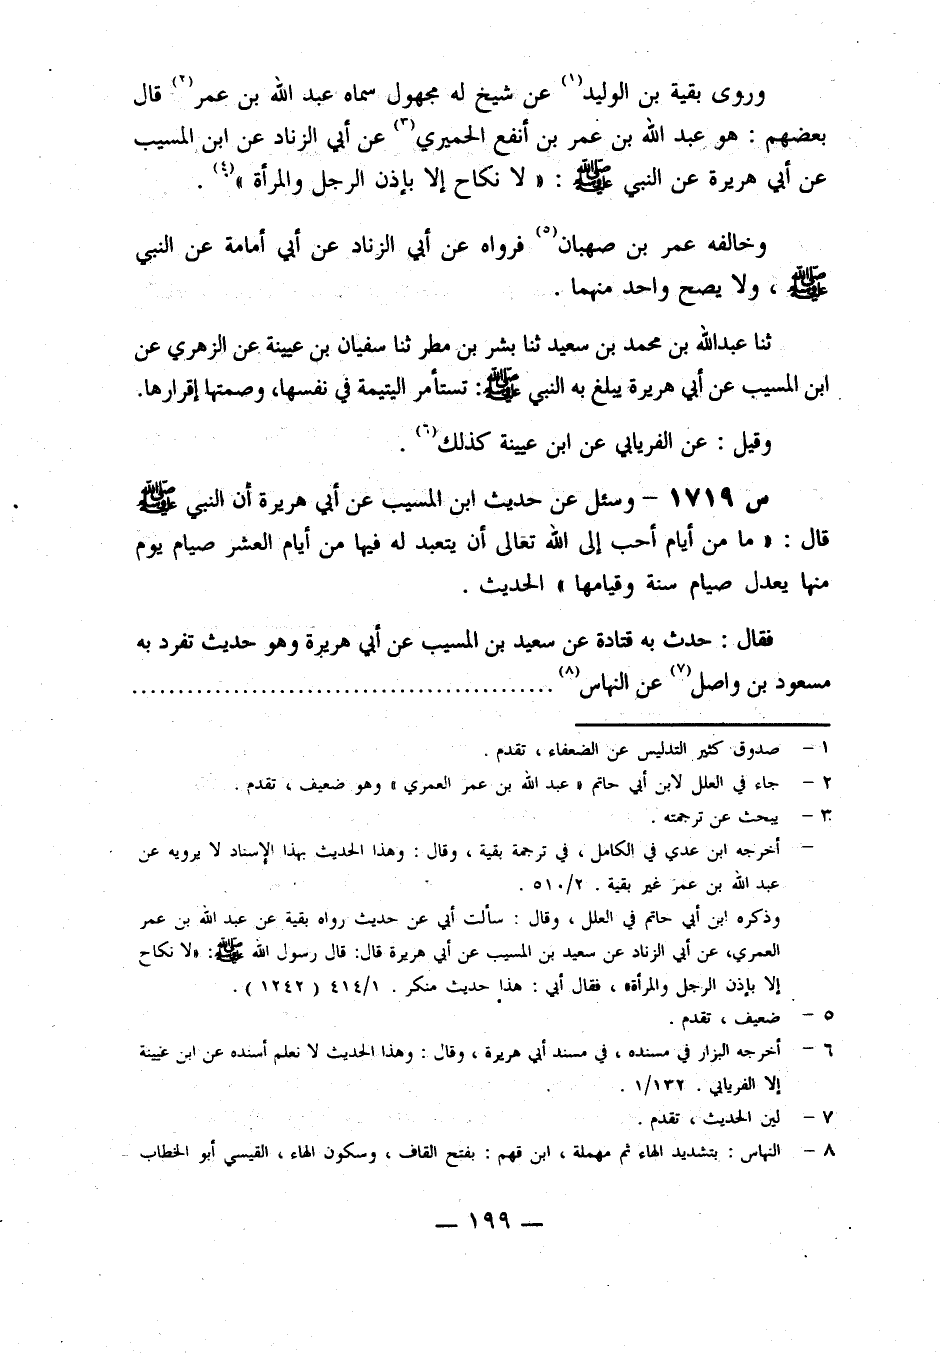 وروى بقية بن الوليد(١) عن شيخ له مجهول سماه عبد الله بن عمر(٢) قال
بعضهم : هو عبد الله بن عمر بن أنفع الحميري(٣) عن أبي الزناد عن ابن المسيب
عن أبي هريرة عن النبي ﷺ : « لا نكاح إلا بإذن الرجل والمرأة »(٤) .
وخالفه عمر بن صهبان(٥) فرواه عن أبي الزناد عن أبي أمامة عن النبي
ﷺ ، ولا يصح واحد منهما .
ثنا عبدالله بن محمد بن سعيد ثنا بشر بن مطر ثنا سفيان بن عيينة عن الزهري عن
ابن المسيب عن أبي هريرة يبلغ به النبي ﷺ: تستأمر اليتيمة في نفسها، وصمتها إقرارها.
وقيل : عن الفريابي عن ابن عيينة كذلك(٦) .
س ١٧١٩ – وسئل عن حديث ابن المسيب عن أبي هريرة أن النبي ﷺ
قال : « ما من أيام أحب إلى الله تعالى أن يتعبد له فيها من أيام العشر صيام يوم
منها يعدل صيام سنة وقيامها » الحديث .
فقال : حدث به قتادة عن سعيد بن المسيب عن أبي هريرة وهو حديث تفرد به
مسعود بن واصل(٧) عن النهاس(٨) ...............................................
١ – صدوق كثير التدليس عن الضعفاء ، تقدم .
٢ – جاء في العلل لابن أبي حاتم « عبد الله بن عمر العمري » وهو ضعيف ، تقدم .
٣ – يبحث عن ترجمته .
– أخرجه ابن عدي في الكامل ، في ترجمة بقية ، وقال : وهذا الحديث بهذا الإسناد لا يرويه عن
عبد الله بن عمر غير بقية . ٥١٠/٢ .
وذكره ابن أبي حاتم في العلل ، وقال : سألت أبي عن حديث رواه بقية عن عبد الله بن عمر
العمري، عن أبي الزناد عن سعيد بن المسيب عن أبي هريرة قال: قال رسول الله ﷺ: «لا نكاح
إلا بإذن الرجل والمرأة» ، فقال أبي : هذا حديث منكر . ٤١٤/١ ( ١٢٤٢ ) .
٥ – ضعيف ، تقدم .
٦ – أخرجه البزار في مسنده ، في مسند أبي هريرة ، وقال : وهذا الحديث لا نعلم أسنده عن ابن عيينة
إلا الفريابي . ١/١٣٢ .
٧ – لين الحديث ، تقدم .
٨ – النهاس : بتشديد الهاء ثم مهملة ، ابن قهم : بفتح القاف ، وسكون الهاء ، القيسي أبو الخطاب
— ١٩٩ —